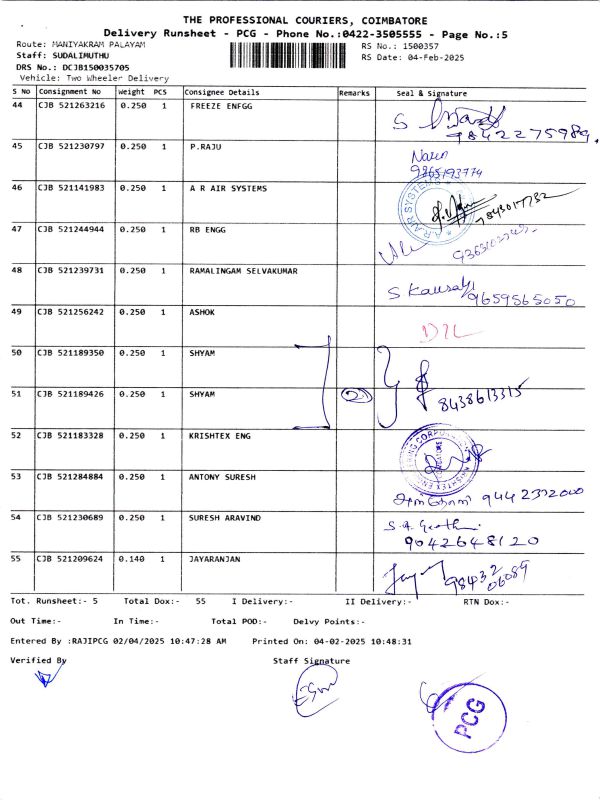 THE PROFESSIONAL COURIERS, COIMBATORE
Delivery Runsheet - PCG - Phone No.:0422-3505555 - Page No.:5
Route: MANIYAKRAM PALAYAM RS No.: 1500357
Staff: SUDALIMUTHU RS Date: 04-Feb-2025
DRS No.: DCJB150035705
Vehicle: Two Wheeler Delivery
S No Consignment No Weight PCS Consignee Details Remarks Seal & Signature
44 CJB 521263216 0.250 1 FREEZE ENFGG
S
9842275989.
45 CJB 521230797 0.250 1 P.RAJU
Naren
9865193774
46 CJB 521141983 0.250 1 A R AIR SYSTEMS
A.R.AIR SYSTEMS
7843017732
47 CJB 521244944 0.250 1 RB ENGG
48 CJB 521239731 0.250 1 RAMALINGAM SELVAKUMAR
S Kausalya 9659565050
49 CJB 521256242 0.250 1 ASHOK
D2L
50 CJB 521189350 0.250 1 SHYAM
51 CJB 521189426 0.250 1 SHYAM 2
8438613315
52 CJB 521183328 0.250 1 KRISHTEX ENG
53 CJB 521284884 0.250 1 ANTONY SURESH
9442372000
54 CJB 521230689 0.250 1 SURESH ARAVIND
S.A.
9042648120
55 CJB 521209624 0.140 1 JAYARANJAN
98432
06089
Tot. Runsheet:- 5 Total Dox:- 55 I Delivery:- II Delivery:- RTN Dox:-
Out Time:- In Time:- Total POD:- Delvy Points:-
Entered By :RAJIPCG 02/04/2025 10:47:28 AM Printed On: 04-02-2025 10:48:31
Verified By Staff Signature
PCG